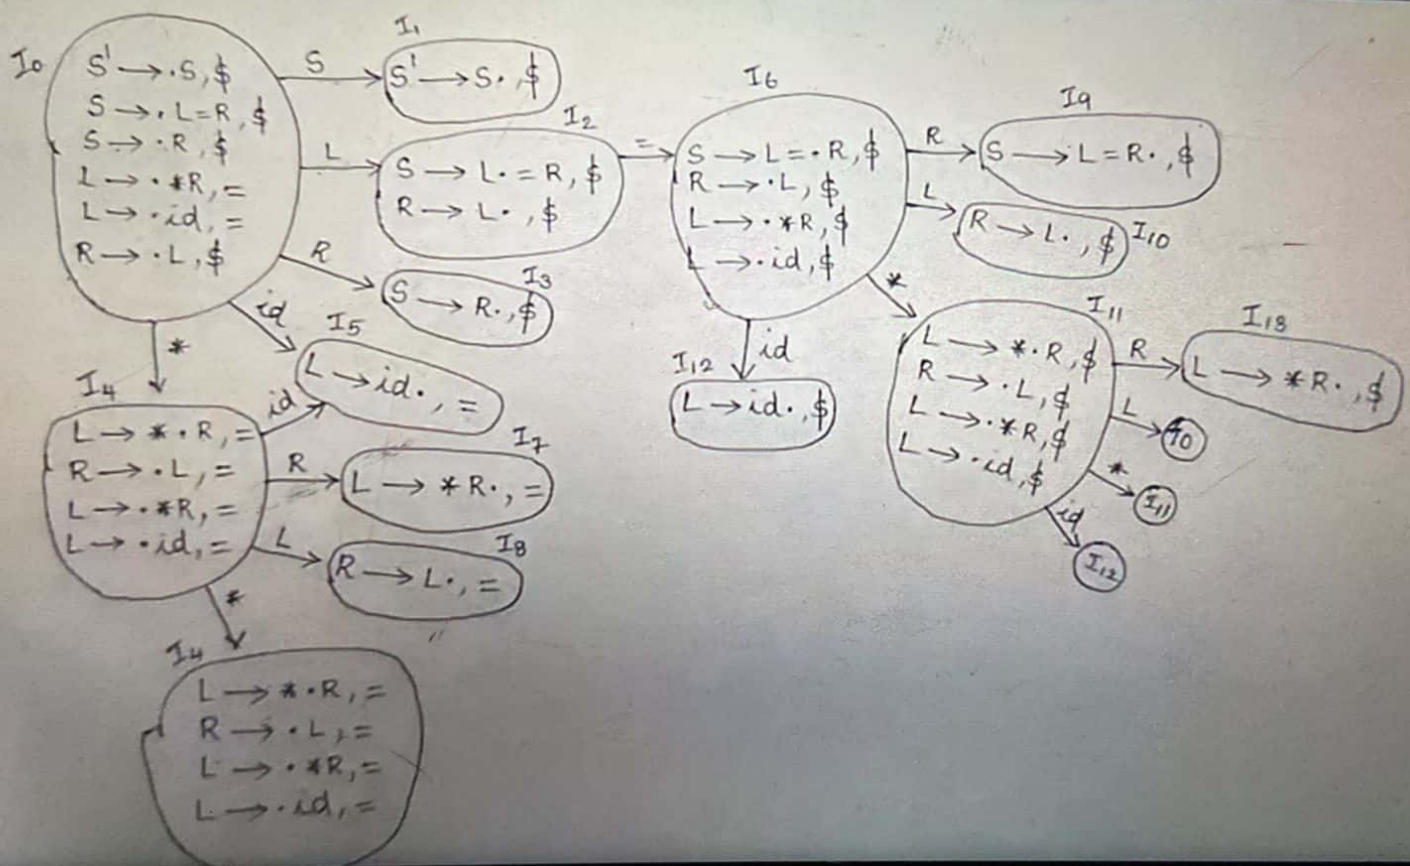 I0
S' → ·S, $
S → ·L=R, $
S → ·R, $
L → ·*R, =
L → ·id, =
R → ·L, $
S
I1
S' → S·, $
L
I2
S → L·=R, $
R → L·, $
R
I3
S → R·, $
id
I5
L → id·, =
*
I4
L → *·R, =
R → ·L, =
L → ·*R, =
L → ·id, =
id
R
I7
L → *R·, =
L
I8
R → L·, =
*
I4
L → *·R, =
R → ·L, =
L → ·*R, =
L → ·id, =
=
I6
S → L=·R, $
R → ·L, $
L → ·*R, $
L → ·id, $
R
I9
S → L=R·, $
L
R → L·, $
I10
id
I12
L → id·, $
*
I11
L → *·R, $
R → ·L, $
L → ·*R, $
L → ·id, $
R
I13
L → *R·, $
L
*
I11
id
I12